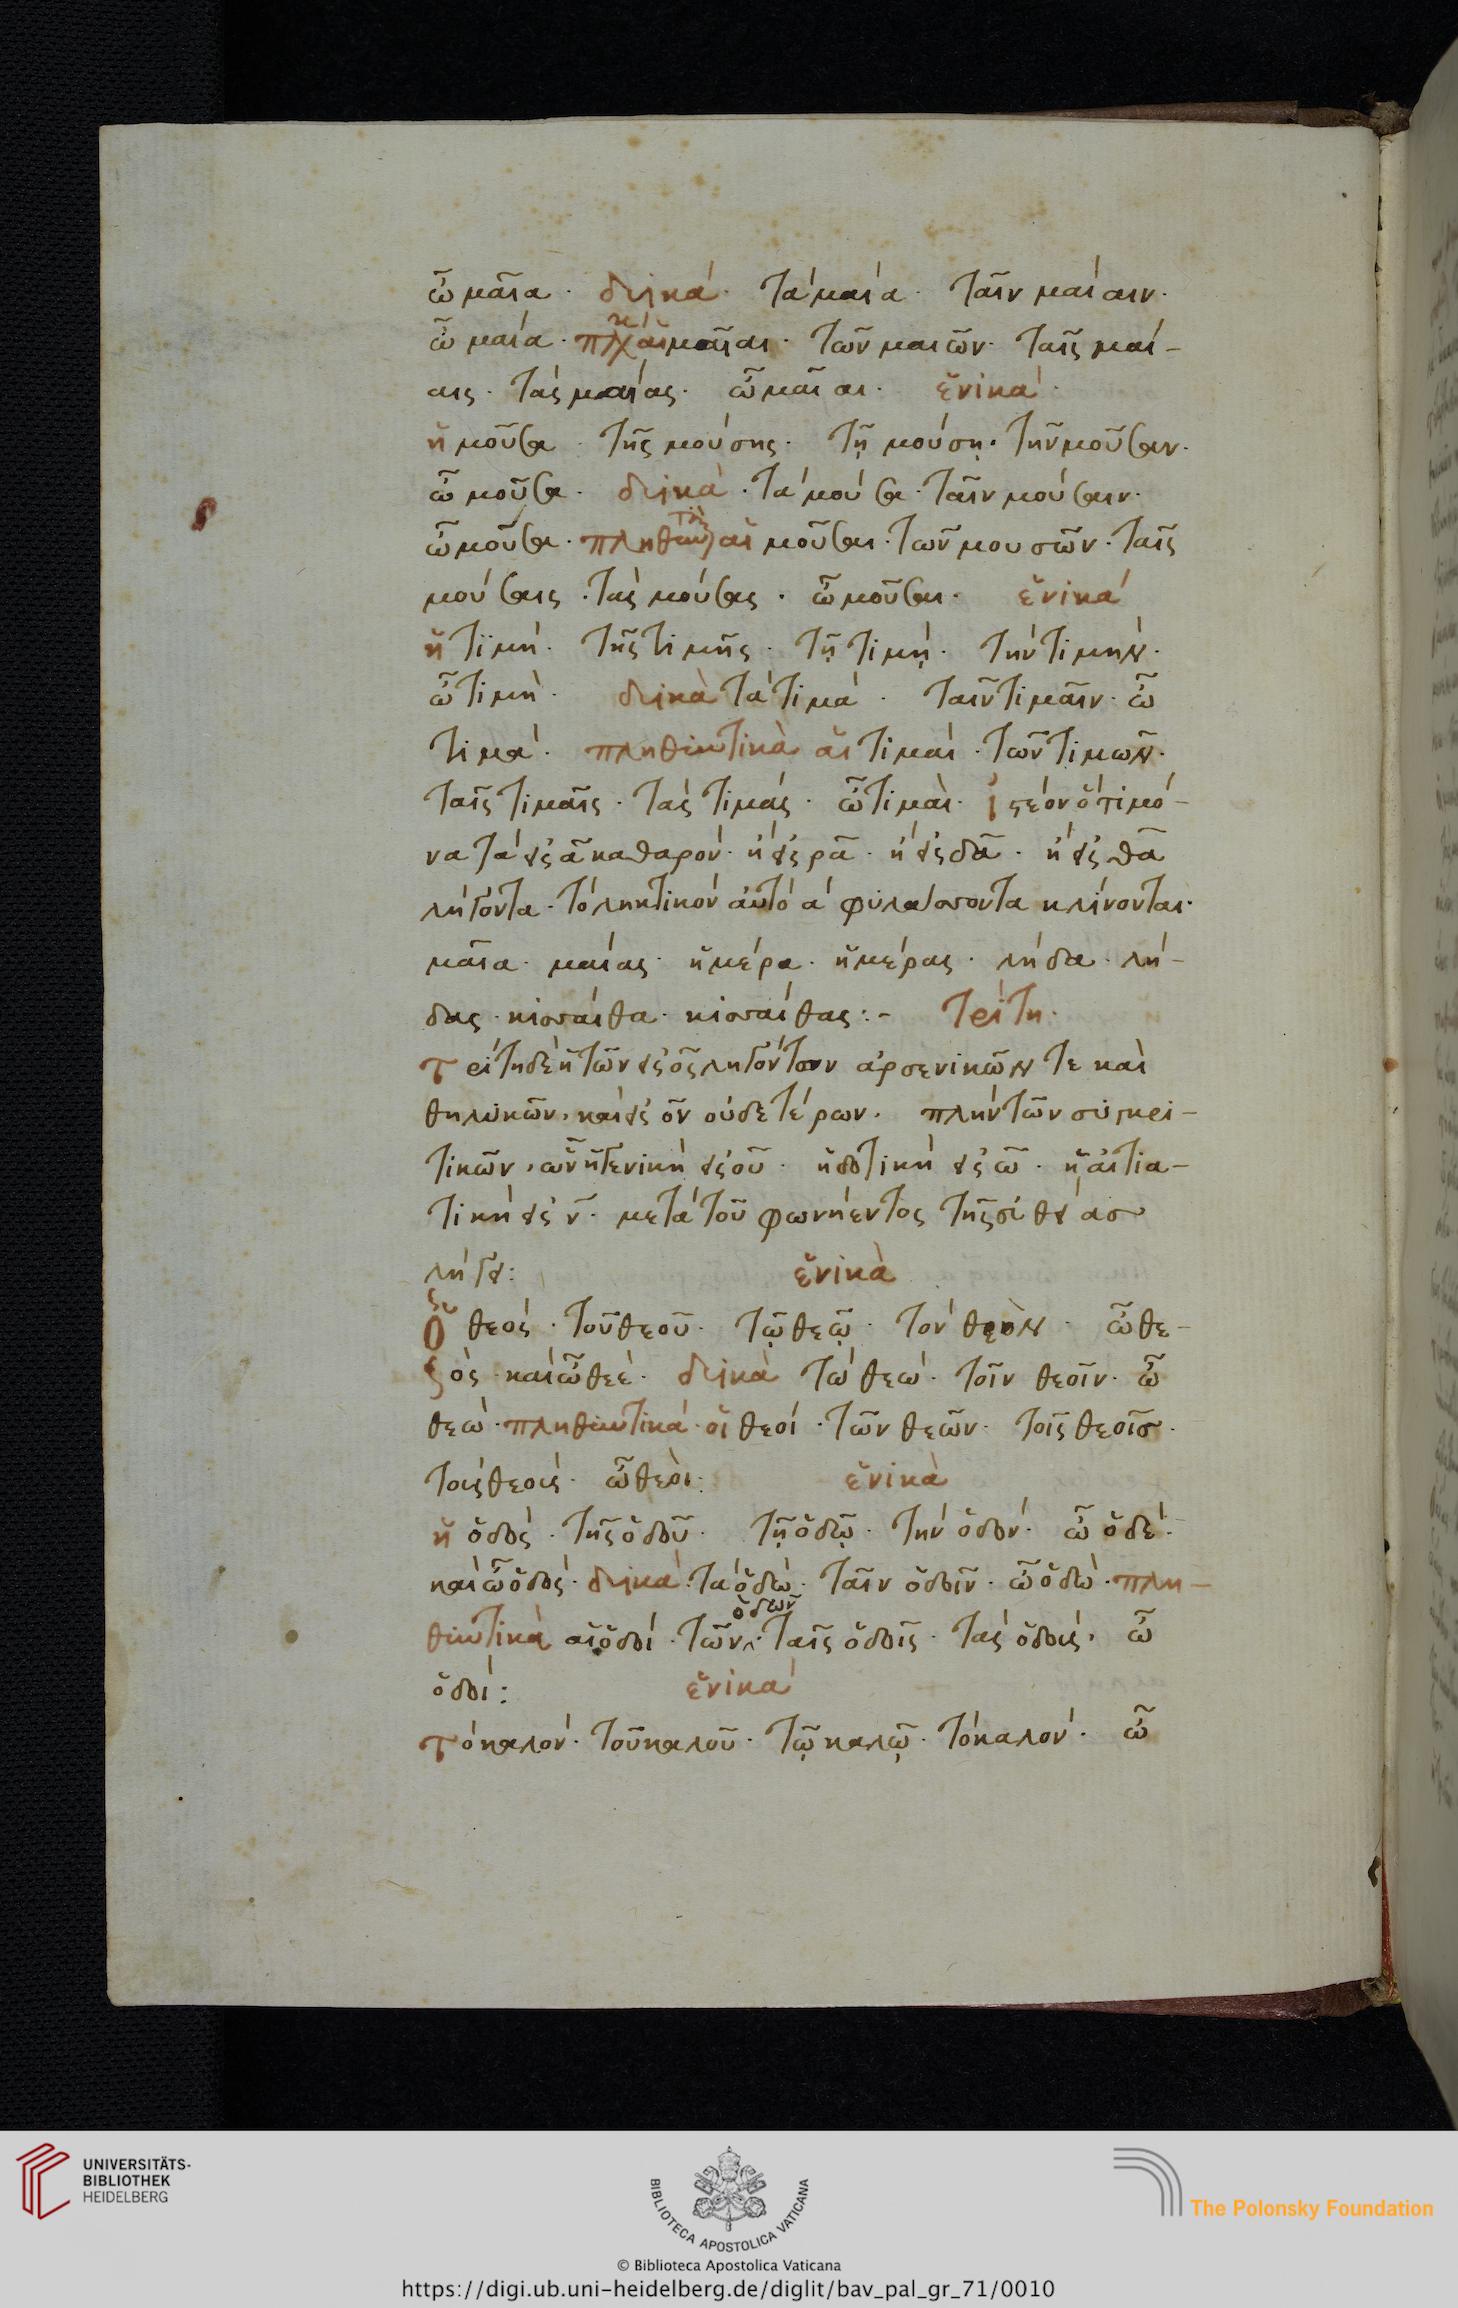 ὦ μαῖα. δυϊκά. τὰ μαία. ταῖν μαίαιν.
ὦ μαία. αἱ μαῖαι. τῶν μαιῶν. ταῖς μαί-
αις. τὰς μαίας. ὦ μαῖαι. ἑνικά.
ἡ μοῦσα. τῆς μούσης. τῇ μούσῃ. τὴν μοῦσαν.
ὦ μοῦσα. δυϊκὰ. τὰ μούσα. ταῖν μούσαιν.
ὦ μούσα. πληθυντικὰ αἱ μοῦσαι. τῶν μουσῶν. ταῖς
μούσαις. τὰς μούσας. ὦ μοῦσαι. ἑνικά
ἡ τιμή. τῆς τιμῆς. τῇ τιμῇ. τὴν τιμήν.
ὦ τιμὴ. δυϊκὰ τὰ τιμά. ταῖν τιμαῖν. ὦ
τιμά. πληθυντικὰ αἱ τιμαί. τῶν τιμῶν.
ταῖς τιμαῖς. τὰς τιμάς. ὦ τιμαὶ. ἰστέον ὅτι μό-
να τὰ εἰς α καθαρόν. ἢ εἰς ρα. ἢ εἰς δα. ἢ εἰς θα
λήγοντα. τὸ ληκτικόν αὐτὸ α φυλάττοντα κλίνονται.
μαῖα. μαίας. ἡμέρα. ἡμέρας. λήδα. λή-
δας. κισσαίθα. κισσαίθας:- τρίτη.
Τρίτη δὲ ἡ τῶν εἰς ος ληγόντων ἀρσενικῶν τε καὶ
θηλυκῶν, καὶ εἰς ον οὐδετέρων. πλὴν τῶν συγκρι-
τικῶν, ὧν ἡ γενικὴ εἰς ου. ἡ δοτικὴ εἰς ω. ἡ αἰτια-
τικὴ εἰς ν. μετὰ τοῦ φωνήεντος τῆς εὐθείας
λήγει: ἑνικὰ
Ὁ θεός. τοῦ θεοῦ. τῷ θεῷ. τὸν θεὸν. ὦ θε-
ὸς καὶ ὦ θεὲ. δυϊκὰ τὼ θεώ. τοῖν θεοῖν. ὦ
θεὼ. πληθυντικά. οἱ θεοί. τῶν θεῶν. τοῖς θεοῖς.
τοὺς θεούς. ὦ θεοὶ. ἑνικὰ
ἡ ὁδός. τῆς ὁδοῦ. τῇ ὁδῷ. τὴν ὁδόν. ὦ ὁδέ.
καὶ ὦ ὁδός. δυϊκά. τὰ ὁδὼ. ταῖν ὁδοῖν. ὦ ὁδὼ. πλη-
θυντικὰ αἱ ὁδοί. τῶν ὁδῶν. ταῖς ὁδοῖς. τὰς ὁδούς. ὦ
ὁδοί: ἑνικά
Τὸ καλόν. τοῦ καλοῦ. τῷ καλῷ. τὸ καλόν. ὦ
UNIVERSITÄTS-
BIBLIOTHEK
HEIDELBERG
BIBLIOTECA APOSTOLICA VATICANA
The Polonsky Foundation
© Biblioteca Apostolica Vaticana
https://digi.ub.uni-heidelberg.de/diglit/bav_pal_gr_71/0010